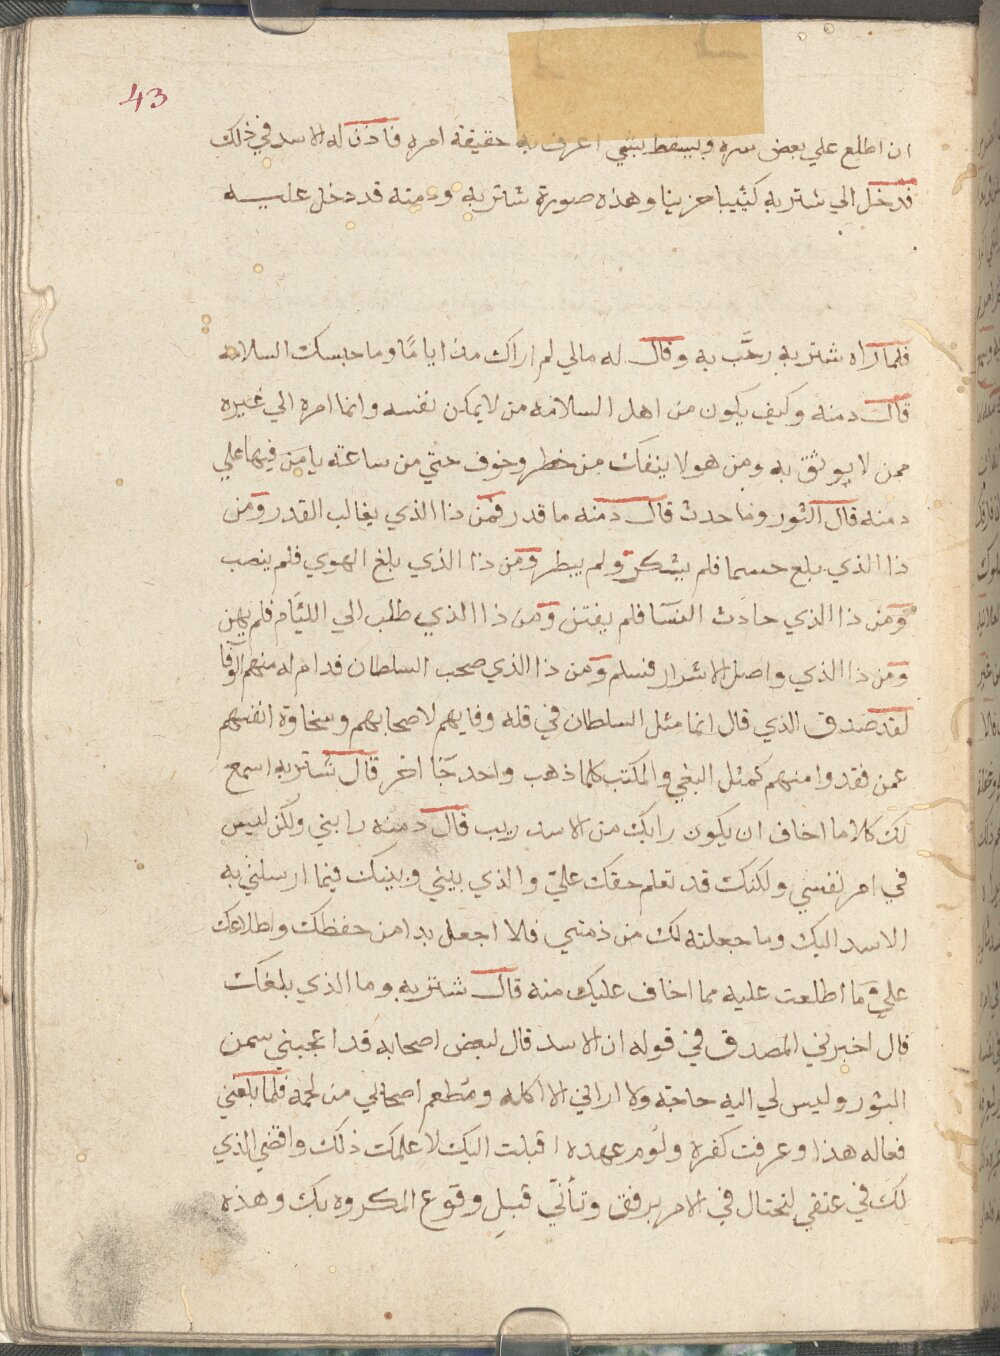 43
ان اطلع علي بعض سره ويسقط بشي اعرف به حقيقة امره فاذن له الاسد في ذلك
فدخل الي شتربه كئيبا حزينا وهذه صورة شتربه ودمنة قد دخل عليه
فلما راه شتربه رحَّب به وقال له مالي لم اراك منذ اياما وما حبسك السلامه
قال دمنه وكيف يكون من اهل السلامه من لا يمكن نفسه وانما امره الي غيره
ممن لا يوثق به ومن هو لا ينفك من خطر وخوف حتي من ساعته يامن فيها علي
دمنه قال الثور وما حدث قال دمنه ما قدر فمن ذا الذي يغالب القدر ومن
ذا الذي بلغ حسما فلم يشكر ولم يبطر ومن ذا الذي بلغ الهوي فلم ينصب
ومن ذا الذي حادث النسا فلم يفتن ومن ذا الذي طلب الي اللئام فلم يهن
ومن ذا الذي واصل الاشرار فسلم ومن ذا الذي صحب السلطان فدام له منهم الوفا
لقد صدق الذي قال انما مثل السلطان في قله وفايهم لاصحابهم وسخاوة انفسهم
عمن فقدوا منهم كمثل البغي والمكتب كلما ذهب واحد جا اخر قال شتربه اسمع
لك كلاما اخاف ان يكون رابك من الاسد ريب قال دمنه رابني ولكن ليس
في امر نفسي ولكنك قد تعلم حقك علي والذي بيني وبينك فيما ارسلني به
الاسد اليك وما جعلته لك من ذمتي فلا اجعل بدا من حفظك واطلاعك
علي ما اطلعت عليه مما اخاف عليك منه قال شتربه وما الذي بلغك
قال اخبرني المصدق في قوله ان الاسد قال لبعض اصحابه قد اعجبني سمن
الثور وليس لي اليه حاجة ولا اراني الا اكله ومطعم اصحابي من لحمه فلما بلغني
فعاله هذا وعرفت كفره ولوم عهده اقبلت اليك لاعلمك ذلك واقضي الذي
لك في عنقي لتحتال في الامر برفق وتأنّي قبل وقوع المكروه بك وهذه